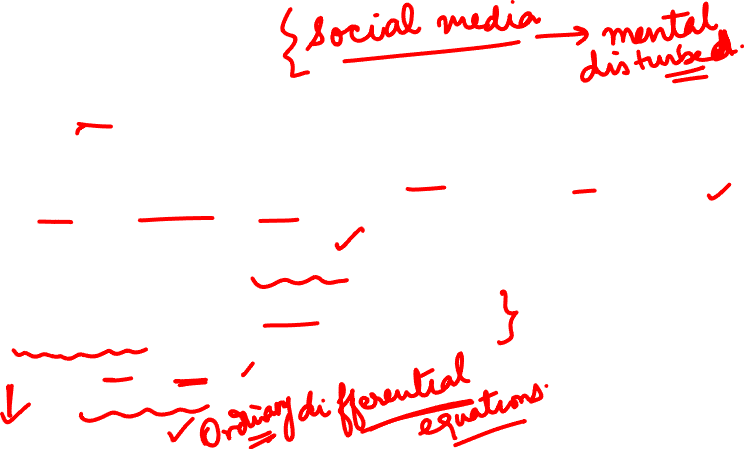 { Social media → mental
disturbed.
Ordinary differential
equations.